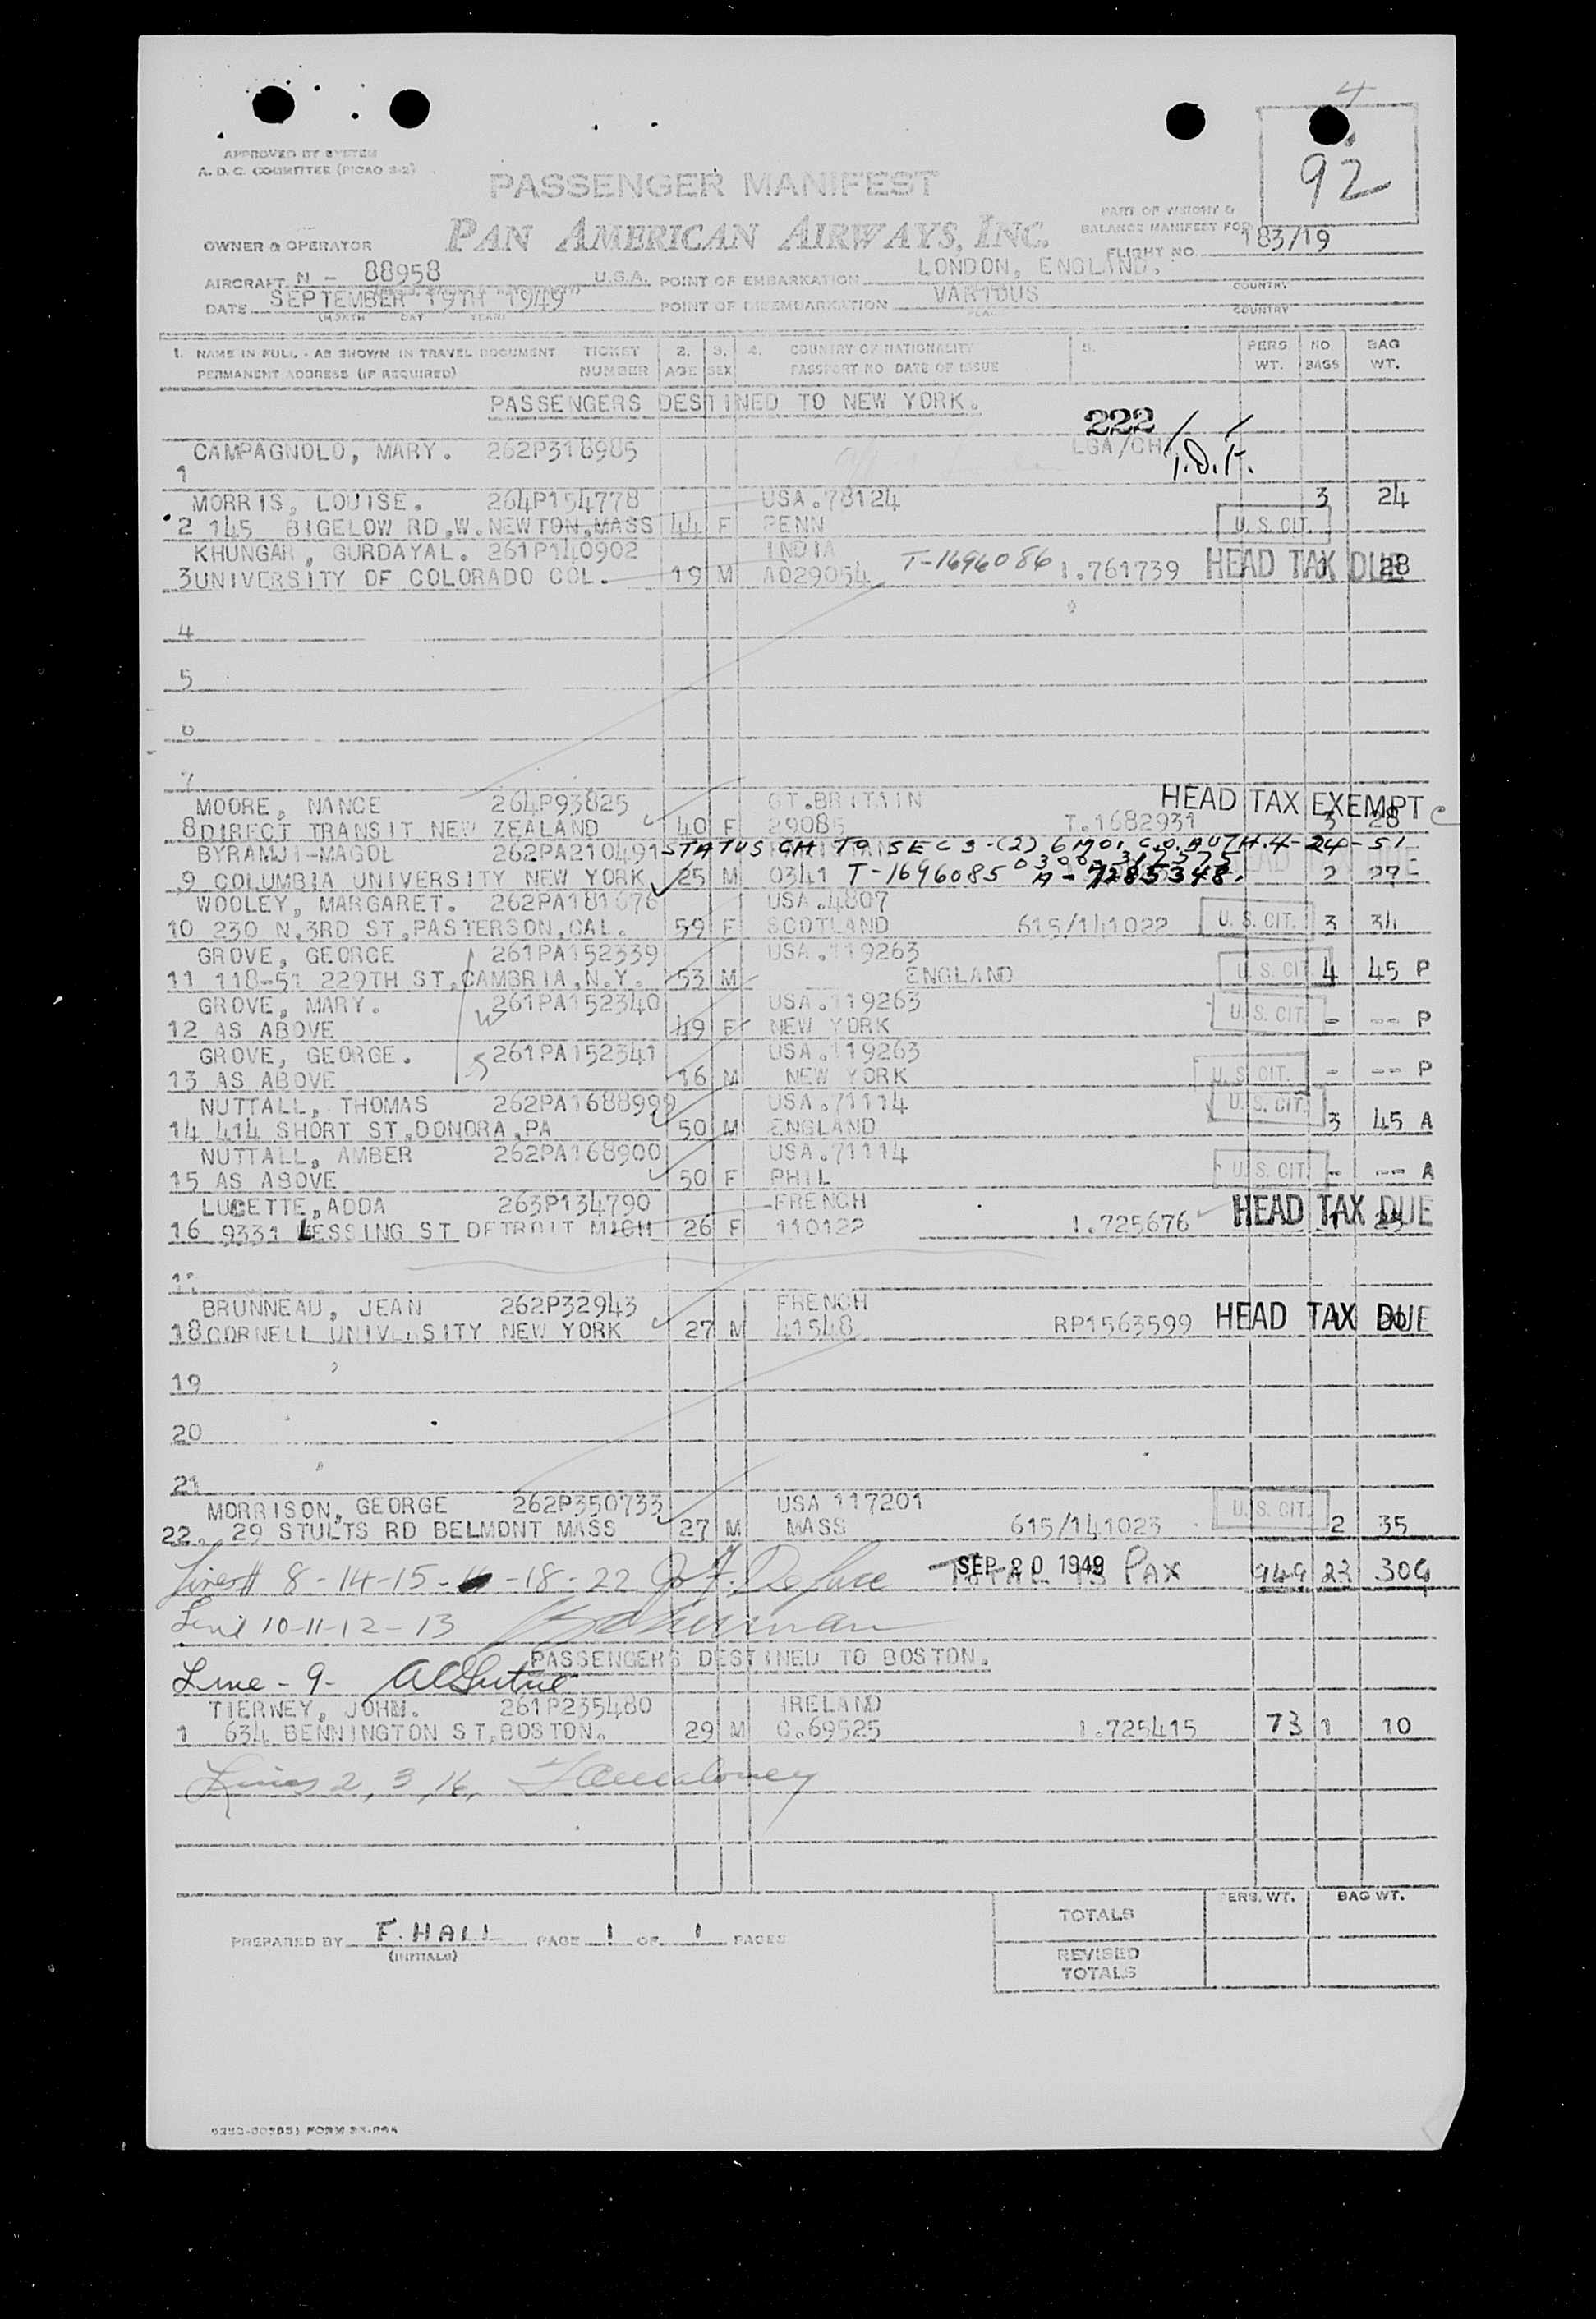 4
92
APPROVED BY SYSTEM
A. D. C. COMMITTEE (PICAO 3-2)
PASSENGER MANIFEST
PAN AMERICAN AIRWAYS, INC.
PART OF WEIGHT &
BALANCE MANIFEST FOR
OWNER & OPERATOR
FLIGHT NO. 183/19
AIRCRAFT N - 88958 U.S.A. POINT OF EMBARKATION LONDON, ENGLAND.
COUNTRY
DATE SEPTEMBER 19TH 1949 POINT OF DISEMBARKATION VARIOUS
(MONTH DAY YEAR) PLACE COUNTRY
1. NAME IN FULL - AS SHOWN IN TRAVEL DOCUMENT TICKET 2. 3. 4. COUNTRY OF NATIONALITY 5. PERS NO. BAG
PERMANENT ADDRESS (IF REQUIRED) NUMBER AGE SEX PASSPORT NO DATE OF ISSUE WT. BAGS WT.
PASSENGERS DESTINED TO NEW YORK.
222
CAMPAGNOLO, MARY. 262P318985 LGA/CH
1
MORRIS, LOUISE. 264P154778 USA.78124 3 24
2 145 BIGELOW RD,W.NEWTON,MASS 44 F PENN U.S. CIT.
KHUNGAR, GURDAYAL. 261P140902 INDIA
3 UNIVERSITY OF COLORADO COL. 19 M A029054 T-1696086 1.761739 HEAD TAX DUE 1 28
4
5
6
7
MOORE, NANCE 264P93825 GT.BRITAIN HEAD TAX EXEMPT
8 DIRECT TRANSIT NEW ZEALAND 40 F 29085 T.1682931 3 28 C
BYRAMJI-MAGOL 262PA210491 STATUS CH TO SEC 3-(2) 6 MO. C.O. AUTH.4-24-51
9 COLUMBIA UNIVERSITY NEW YORK 25 M 0341 T-1696085 0300-317575 A-7285348. 2 27
WOOLEY, MARGARET. 262PA181676 USA.4807
10 230 N.3RD ST,PASTERSON,CAL. 59 F SCOTLAND 615/141022 U.S. CIT. 3 34
GROVE, GEORGE 261PA152339 USA.119263
11 118-51 229TH ST,CAMBRIA,N.Y. 53 M ENGLAND U.S. CIT 4 45 P
GROVE, MARY. 261PA152340 USA.119263
12 AS ABOVE 49 F NEW YORK U.S. CIT. - --- P
GROVE, GEORGE. 261PA152341 USA.119263
13 AS ABOVE 16 M NEW YORK U.S. CIT. - --- P
NUTTALL, THOMAS 262PA1688999 USA.71114 U.S. CIT.
14 414 SHORT ST,DONORA,PA 50 M ENGLAND 3 45 A
NUTTALL, AMBER 262PA168900 USA.71114
15 AS ABOVE 50 F PHIL U.S. CIT. - --- A
LUCETTE,ADDA 263P134790 FRENCH
16 9331 LESSING ST DETROIT MICH 26 F 110122 1.725676 HEAD TAX DUE
BRUNNEAU, JEAN 262P32943 FRENCH
18 CORNELL UNIVERSITY NEW YORK 27 M 41548 RP1563599 HEAD TAX DUE
19
20
21
MORRISON, GEORGE 262P350733 USA 117201 U.S. CIT.
22. 29 STULTS RD BELMONT MASS 27 M MASS 615/141023 2 35
Lines# 8-14-15- -18-22 SEP 20 1949 TOTAL 13 PAX 949 23 306
Line 10-11-12-13
PASSENGERS DESTINED TO BOSTON.
Line - 9-
TIERNEY, JOHN. 261P235480 IRELAND
1 634 BENNINGTON ST,BOSTON. 29 M C.69525 1.725415 73 1 10
Lines 2, 3, 16,
PERS. WT. BAG WT.
TOTALS
PREPARED BY F. HALL PAGE 1 OF 1 PAGES
(INITIALS)
REVISED
TOTALS